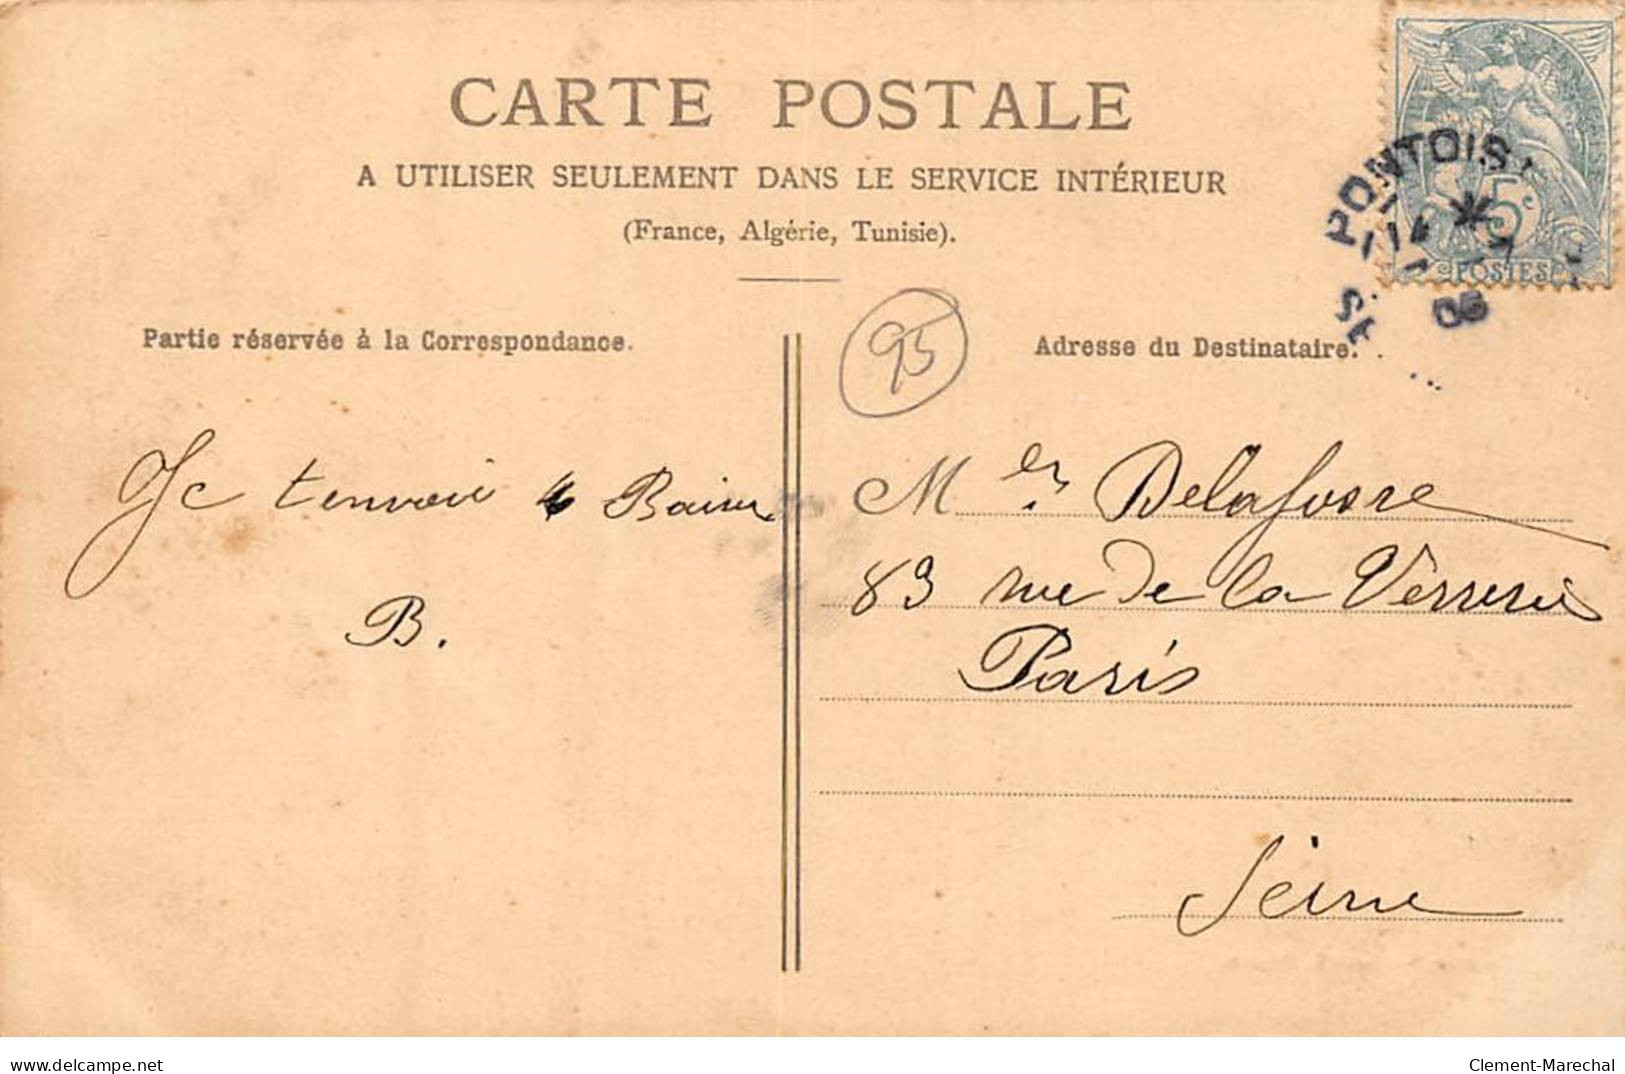 CARTE POSTALE
A UTILISER SEULEMENT DANS LE SERVICE INTÉRIEUR
(France, Algérie, Tunisie).
PONTOIS
06
5c
POSTES
Partie réservée à la Correspondance.
95
Adresse du Destinataire.
Je t'envoie Baiser
B.
M Delafosse
83 rue de la Verrerie
Paris
Seine
www.delcampe.net
Clement-Marechal